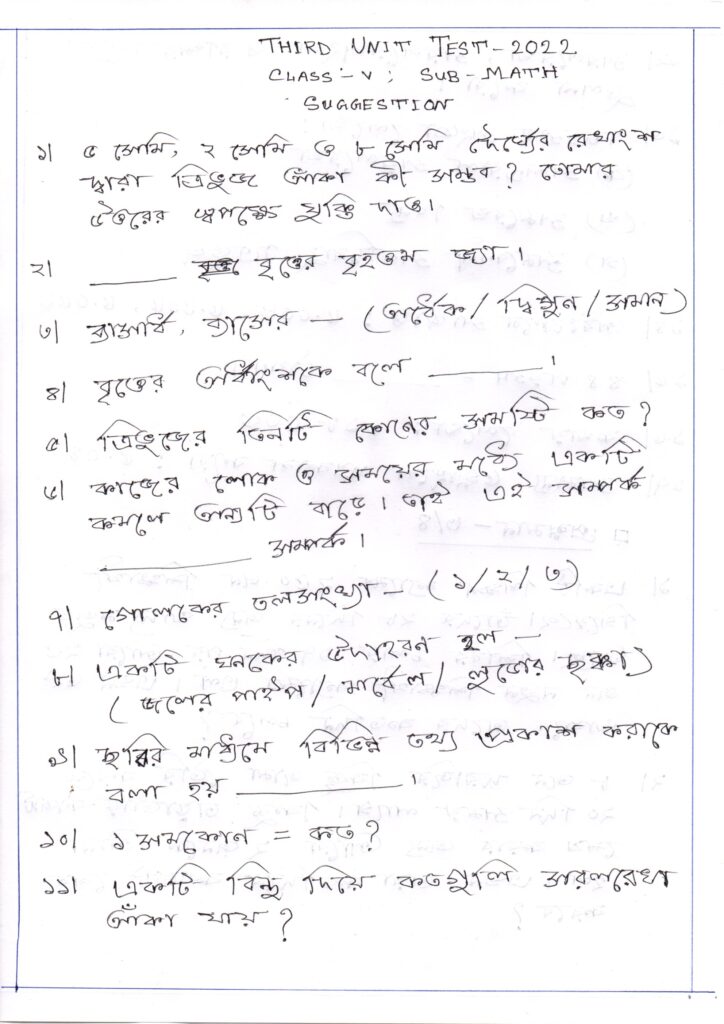 THIRD UNIT TEST-2022
CLASS-V; SUB-MATH
SUGGESTION
১) ৫ সেমি, ২ সেমি ও ৮ সেমি দৈর্ঘ্যের রেখাংশ
দ্বারা ত্রিভুজ আঁকা কী সম্ভব? তোমার
উত্তরের স্বপক্ষে যুক্তি দাও।
২) ______ বৃত্তের বৃহত্তম জ্যা।
৩) ব্যাসার্ধ, ব্যাসের — (অর্ধেক/দ্বিগুন/সমান)
৪) বৃত্তের অর্ধাংশকে বলে ______।
৫) ত্রিভুজের তিনটি কোণের সমষ্টি কত?
৬) কাজের লোক ও সময়ের মধ্যে একটি
কমলে অন্যটি বাড়ে। তাই এই সম্পর্ক
______ সম্পর্ক।
৭) গোলকের তলসংখ্যা — (১/২/৩)
৮) একটি ঘনকের উদাহরন হল —
(জলের পাইপ/মার্বেল/লুডোর ছক্কা)
৯) ছবির মাধ্যমে বিভিন্ন তথ্য প্রকাশ করাকে
বলা হয় ______।
১০) ১ সমকোন = কত?
১১) একটি বিন্দু দিয়ে কতগুলি সরলরেখা
আঁকা যায়?